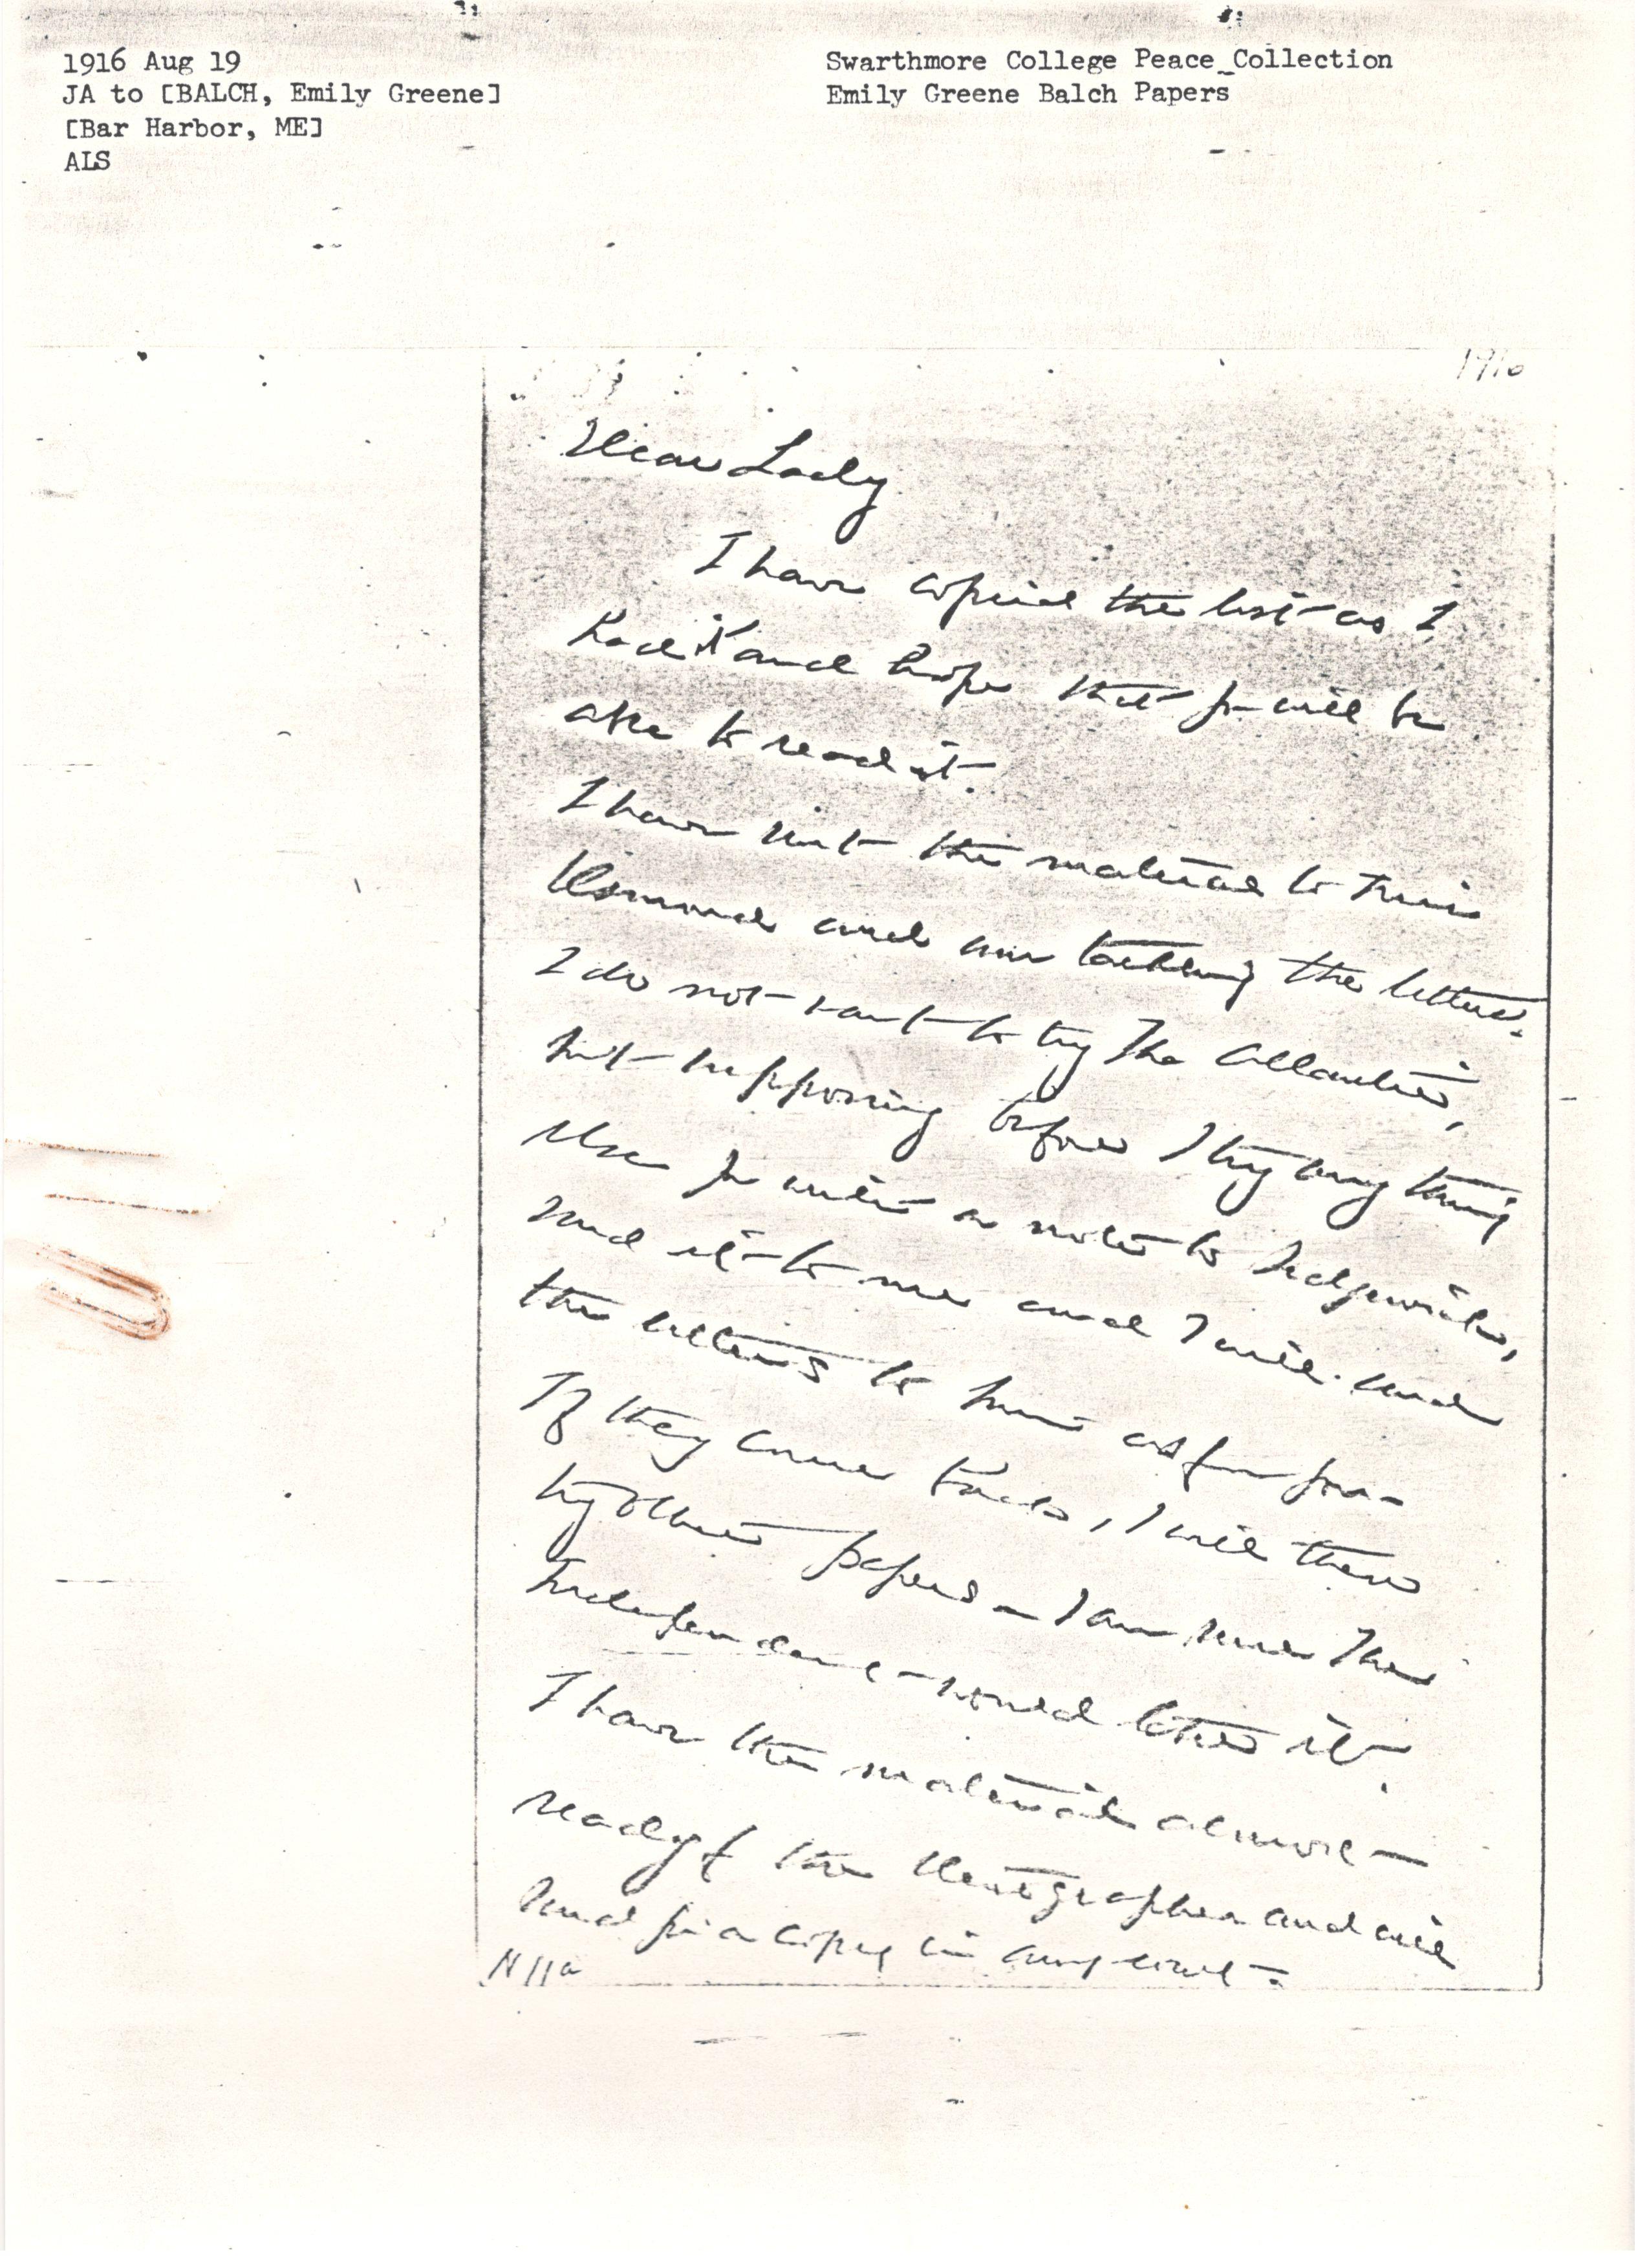 1916 Aug 19
JA to [BALCH, Emily Greene]
[Bar Harbor, ME]
ALS
Swarthmore College Peace Collection
Emily Greene Balch Papers
1916
Dear Lady
I have copied the list as I
had it and hope that you will be
able to read it.
I have not the material to
and am the letters.
I do not want to try The Atlantic,
but supposing before I try any thing
else you write a note to Sedgwick,
send it to me and I will send
the letters to him as from you.
If they come back, I will then
try other papers – I am sure The
Independent would take it.
I have the material almost
ready for the stenographer and will
send you a copy in any event.
N 11a